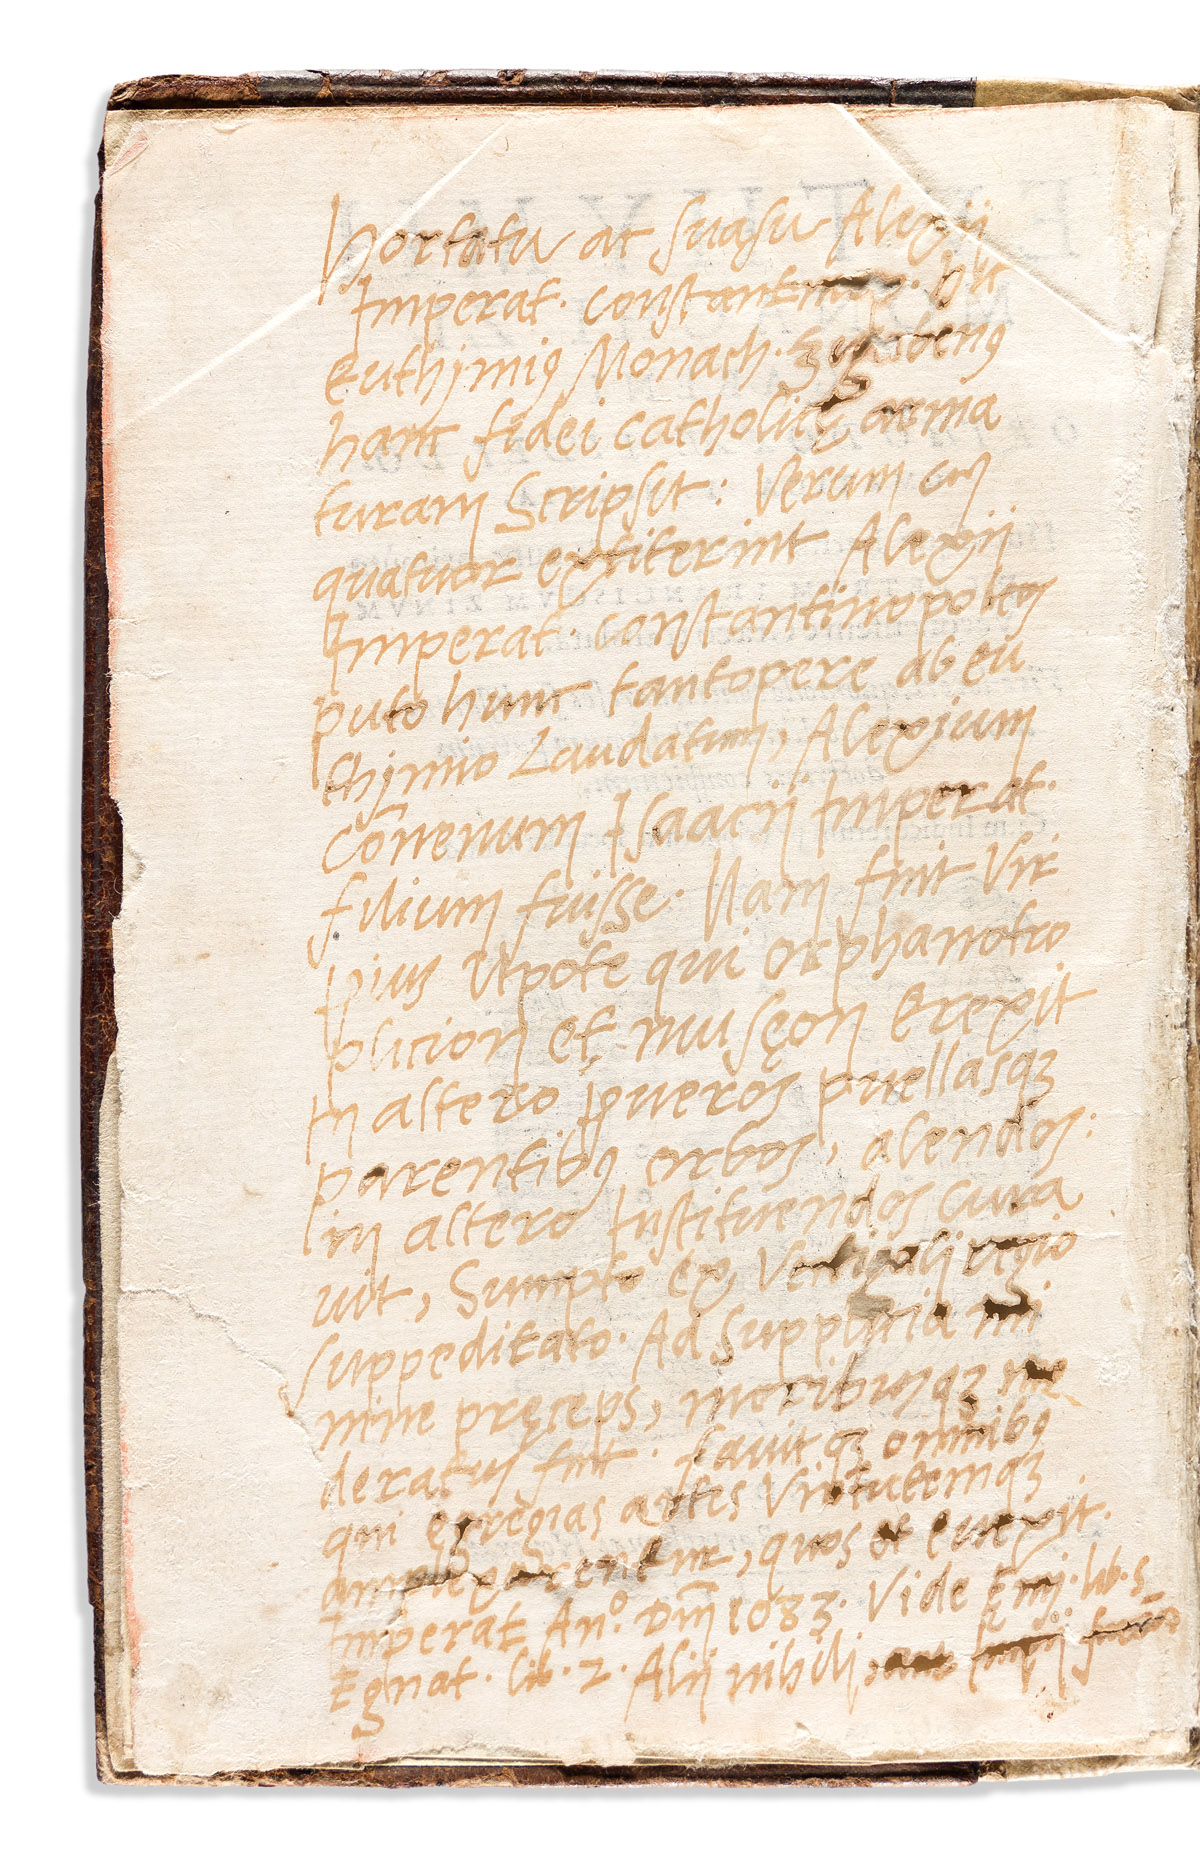 Hortatu ac suasu Alexij
Imperat. constantinop. hic
Euthimiꝰ Monach. Zygabenꝰ
hanc fidei catholicę arma
turam Scripsit: Verum cū
quatuor extiterint Alexij
Imperat. constantinopoleos
puto hunc tantopere ab eu
thimio Laudatum, Alexium
Cōnenum Isaacij Imperat.
filium fuisse. Nam fuit Vir
pius Utpote qui orphanotro
phicion et musęon Erexit
In altero pueros puellasqꝫ
parentibꝰ orbos, alendos:
in altero Instituendos cura
uit, Sumpto ex Vectigalij regio
suppeditato. Ad Supplicia mi
nime pręceps, moribusqꝫ mo
deratus fuit. fauitqꝫ omnibꝰ
qui egregias artes Virtutemqꝫ
amplexarentur, quos et euexit.
Imperat An.º Dm̄ 1083. Vide lib. 5
Egnat. lib. 2. Alij nihili,